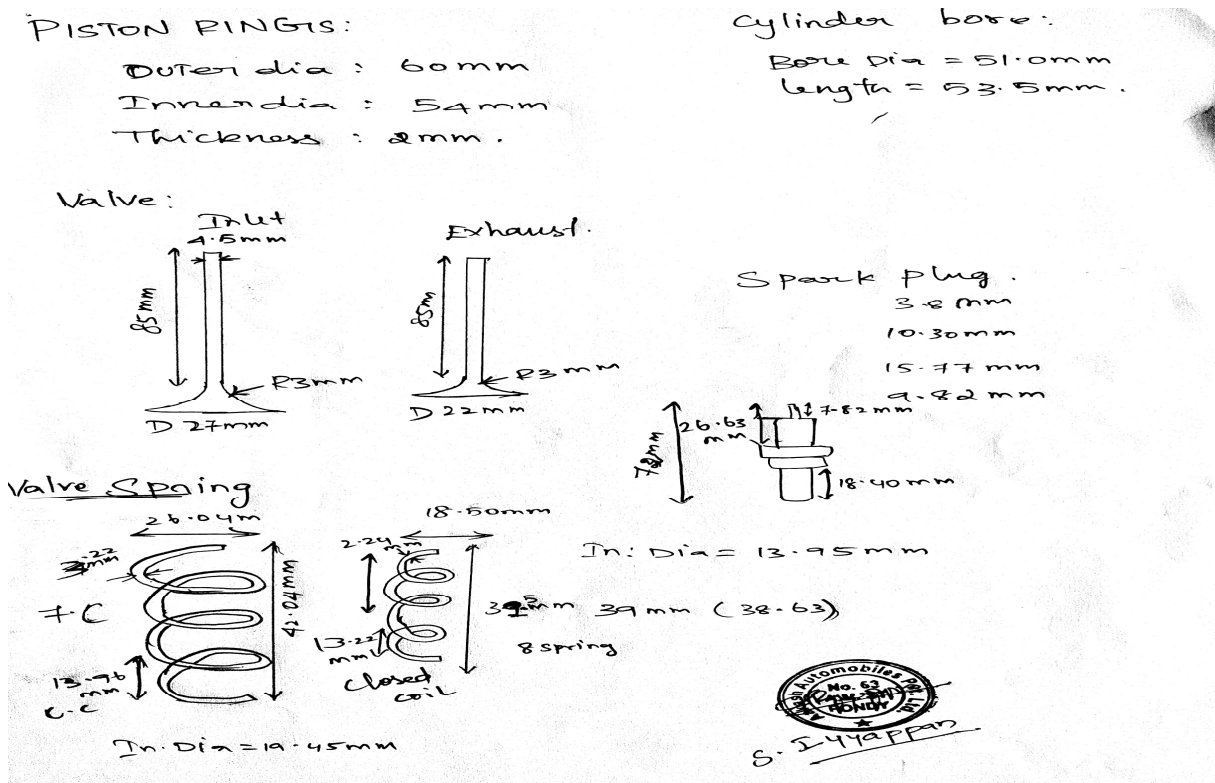 PISTON RINGS:
Outer dia : 60mm
Inner dia : 54mm
Thickness : 2mm.
Cylinder bore:
Bore Dia = 51.0mm
length = 53.5mm.
Valve:
Inlet
4.5mm
85mm
R3mm
D 27mm
Exhaust.
85m
R3mm
D 22mm
Spark plug.
3.8 mm
10.30mm
15.77 mm
9.82 mm
7.82mm
26.63
mm
78mm
18.40mm
Valve Spring
26.04m
mm
7-C
42.04mm
13.96
mm
C.C
In. Dia = 19.45mm
18.50mm
2.24
mm
13.22
mm
closed
coil
39 mm (38.63)
8 spring
In: Dia = 13.95mm
Automobiles Pvt. Ltd.
No. 63
HONDA
S. Iyyappan